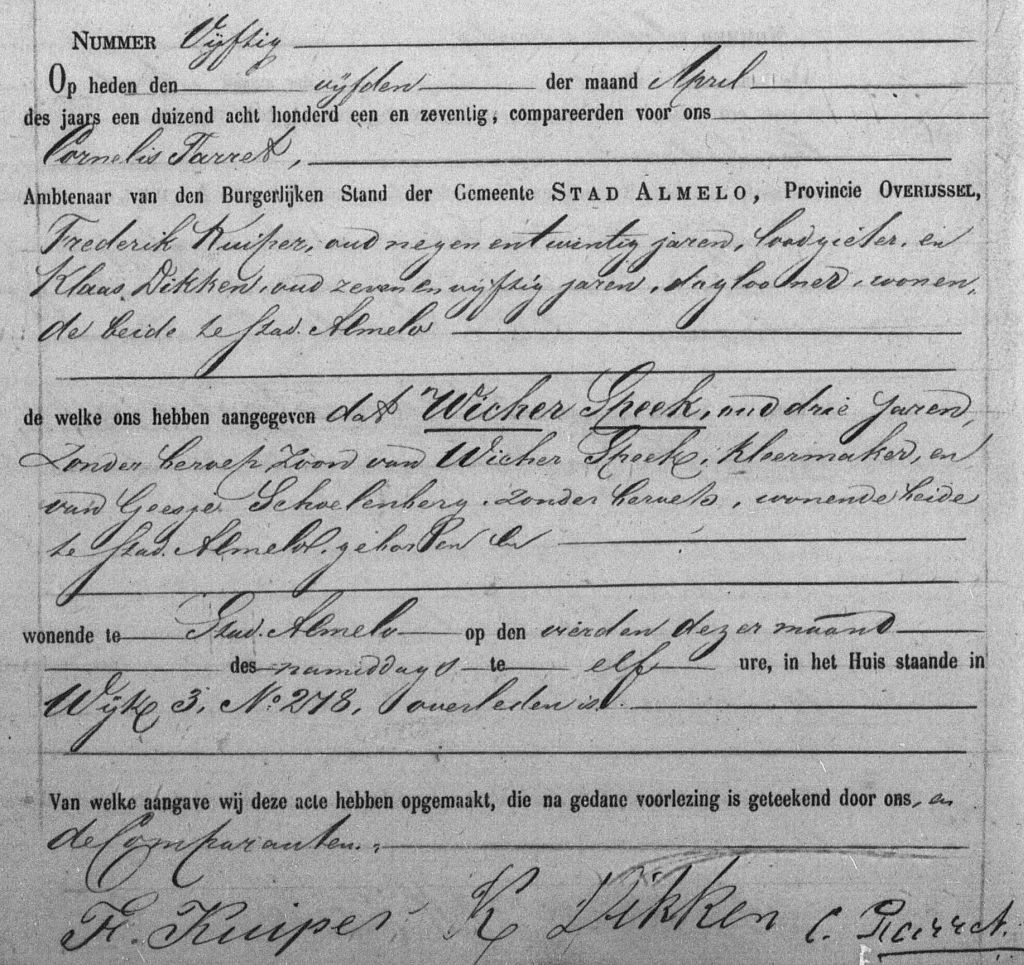 NUMMER Vijftig
Op heden den vijfden der maand April
des jaars een duizend acht honderd een en zeventig, compareerden voor ons
Cornelis Tarret,
Ambtenaar van den Burgerlijken Stand der Gemeente STAD ALMELO, Provincie OVERIJSSEL,
Frederik Kuiper, oud negen en twintig jaren, loodgieter, en
Klaas Dikken, oud zeven en vijftig jaren, daglooner, wonen,
de beide te Stad. Almelo
de welke ons hebben aangegeven dat Wicher Speek, oud drie jaren,
zonder beroep, zoon van Wicher Speek, kleermaker, en
van Geesje Schoelenberg, zonder beroep, wonende beide
te Stad. Almelo, geboren en
wonende te Stad. Almelo op den vierden dezer maand
des namiddags te elf ure, in het Huis staande in
Wijk 3, No 278, overleden is.
Van welke aangave wij deze acte hebben opgemaakt, die na gedane voorlezing is geteekend door ons, en
de Comparanten.
Fr. Kuiper K Dikken C. Tarret.